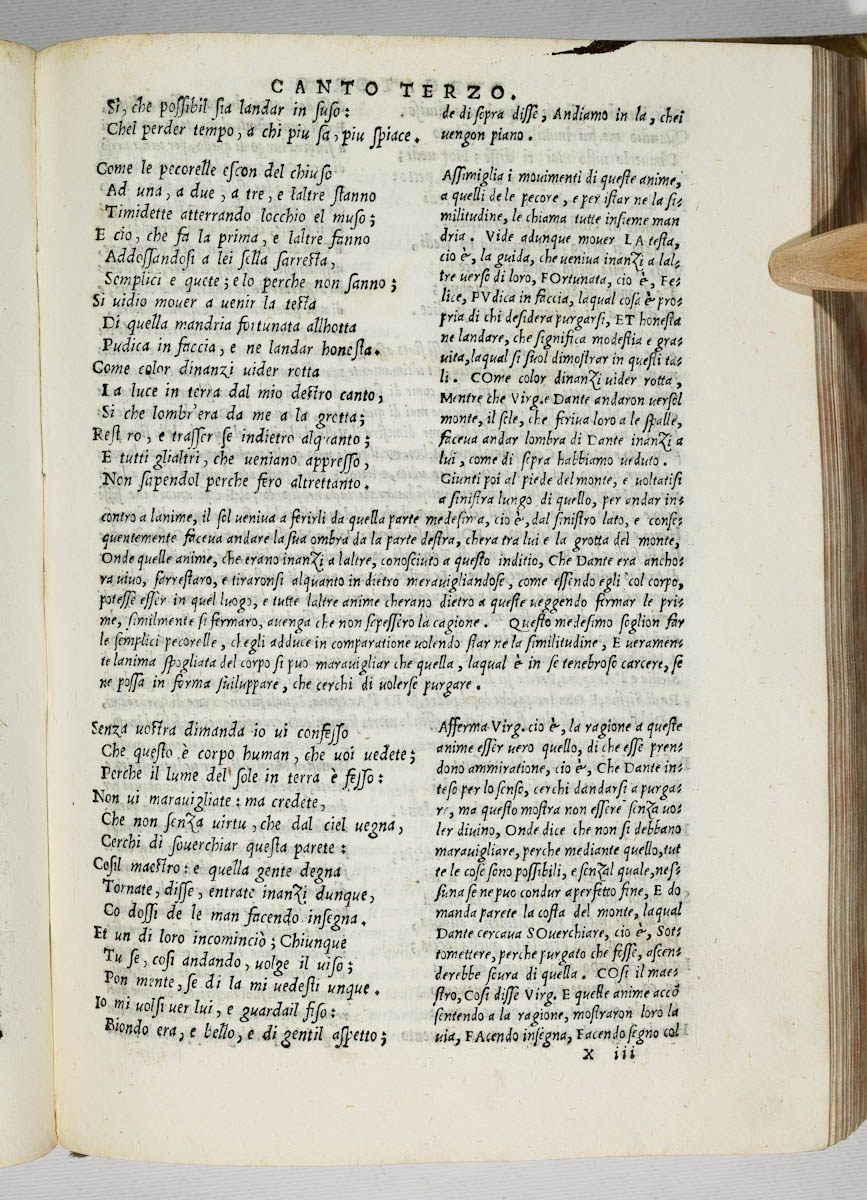 CANTO TERZO.
Si, che possibil sia landar in suso:
Chel perder tempo, a chi piu sa, piu spiace.
Come le pecorelle escon del chiuso
Ad una, a due, a tre, e laltre stanno
Timidette atterrando locchio el muso;
E cio, che fa la prima, e laltre fanno
Addossandosi a lei sella sarresta,
Semplici e quete; e lo perche non sanno;
Si uidio mouer a uenir la testa
Di quella mandria fortunata allhotta
Pudica in faccia, e ne landar honesta.
Come color dinanzi uider rotta
La luce in terra dal mio destro canto,
Si che lombr'era da me a la grotta;
Rest ro, e trasser se indietro alquanto;
E tutti glialtri, che ueniano appresso,
Non sapendol perche fero altrettanto.
de di sopra disse, Andiamo in la, chei
uengon piano.
Assimiglia i mouimenti di queste anime,
a quelli de le pecore, e per istar ne la si=
militudine, le chiama tutte insieme man
dria. Vide adunque mouer LA testa,
cio è, la guida, che ueniua inanzi a lal=
tre uerso di loro, FOrtunata, cio è, Fe=
lice, PVdica in faccia, laqual cosa è pro=
pria di chi desidera purgarsi, ET honesta
ne landare, che significa modestia e gra=
uita, laqual si suol dimostrar in questi ta=
li. COme color dinanzi uider rotta,
Mentre che Virg. e Dante andaron uersol
monte, il sole, che feriua loro a le spalle,
faceua andar lombra di Dante inanzi a
lui, come di sopra habbiamo ueduto.
Giunti poi al piede del monte, e uoltatisi
a sinistra lungo di quello, per andar in=
contro a lanime, il sol ueniua a ferirli da quella parte medesima, cio è, dal sinistro lato, e conse=
quentemente faceua andare la sua ombra da la parte destra, chera tra lui e la grotta del monte,
Onde quelle anime, che erano inanzi a laltre, conosciuto a questo inditio, Che Dante era ancho=
ra uiuo, sarrestaro, e tiraronsi alquanto in dietro merauigliandose, come essendo egli col corpo,
potesse esser in quel luogo, e tutte laltre anime cherano dietro a queste ueggendo fermar le pri=
me, similmente si fermaro, auenga che non sepessero la cagione. Questo medesimo soglion far
le semplici pecorelle, chegli adduce in comparatione uolendo star ne la similitudine, E ueramen=
te lanima spogliata del corpo si puo marauigliar che quella, laqual è in se tenebroso carcere, se
ne possa in forma suiluppare, che cerchi di uolerse purgare.
Senza uostra dimanda io ui confesso
Che questo è corpo human, che uoi uedete;
Perche il lume del sole in terra è fesso:
Non ui marauigliate: ma credete,
Che non senza uirtu, che dal ciel uegna,
Cerchi di souerchiar questa parete:
Cosil maestro: e quella gente degna
Tornate, disse, entrate inanzi dunque,
Co dossi de le man facendo insegna.
Et un di loro incominciò; Chiunque
Tu se, cosi andando, uolge il uiso;
Pon mente, se di la mi uedesti unque.
Io mi uolsi uer lui, e guardail fiso:
Biondo era, e bello, e di gentil aspetto;
Afferma Virg. cio è, la ragione a queste
anime esser uero quello, di che esse pren=
dono ammiratione, cio è, Che Dante in=
teso per lo senso, cerchi dandarsi a purga=
re, ma questo mostra non essere senza uo=
ler diuino, Onde dice che non si debbano
marauigliare, perche mediante quello, tut
te le cose sono possibili, e senzal quale, nes=
suna se ne puo condur a perfetto fine, E do
manda parete la costa del monte, laqual
Dante cercaua SOuerchiare, cio è, Sot=
tomettere, perche purgato che fesse, ascen=
derebbe scura di quella. COsi il mae=
stro, Cosi disse Virg. E quelle anime accō
sentendo a la ragione, mostraron loro la
uia, FAcendo insegna, Facendo segno col
X iii